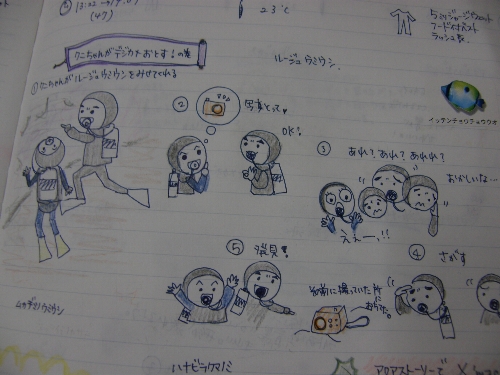 ② 13:22 → 14:09
(47)
23℃
5ミリジャージウェット
フード付ベスト
ラッシュ系
クニちゃんがデジカメおとす!の巻
①クニちゃんがルージュウミウシをみせてくれる
ルージュウミウシ.
イッテンチョウチョウウオ
② 写真とって♥
OK!
③ あれ?あれ?あれれ?
おかしいな…
えぇーっ!!
④ さがす
⑤ 発見!
以前に撮っていた所に
おちてた。
ムカデミノウミウシ
ハナビラクマノミ
アクアストーリーで